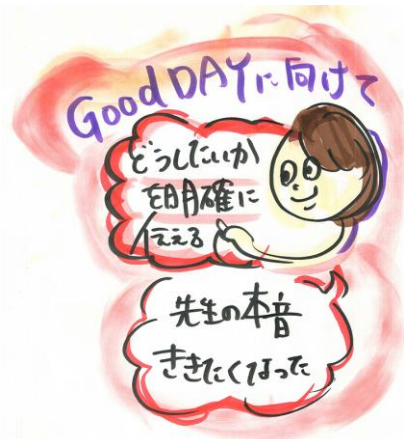 Good DAYに向けて
どうしたいか
を明確に
伝える
先生の本音
ききたくなった